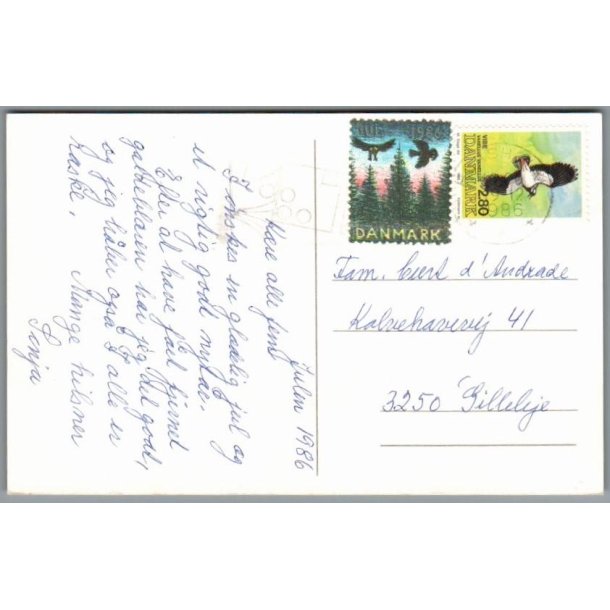 Julen 1986
Kære alle fem
I ønskes en glædelig jul og
et rigtig godt nytår.
Efter at have fået fjernet
galdeblæren har jeg det godt,
og jeg håber også I alle er
raske.
Mange hilsner
Sonja
JUL 1986
DANMARK
VIBE
VANELLUS VANELLUS
DANMARK
2.80
1986
Fam. Curt d'Andrade
Kalvehavevej 41
3250 Gilleleje